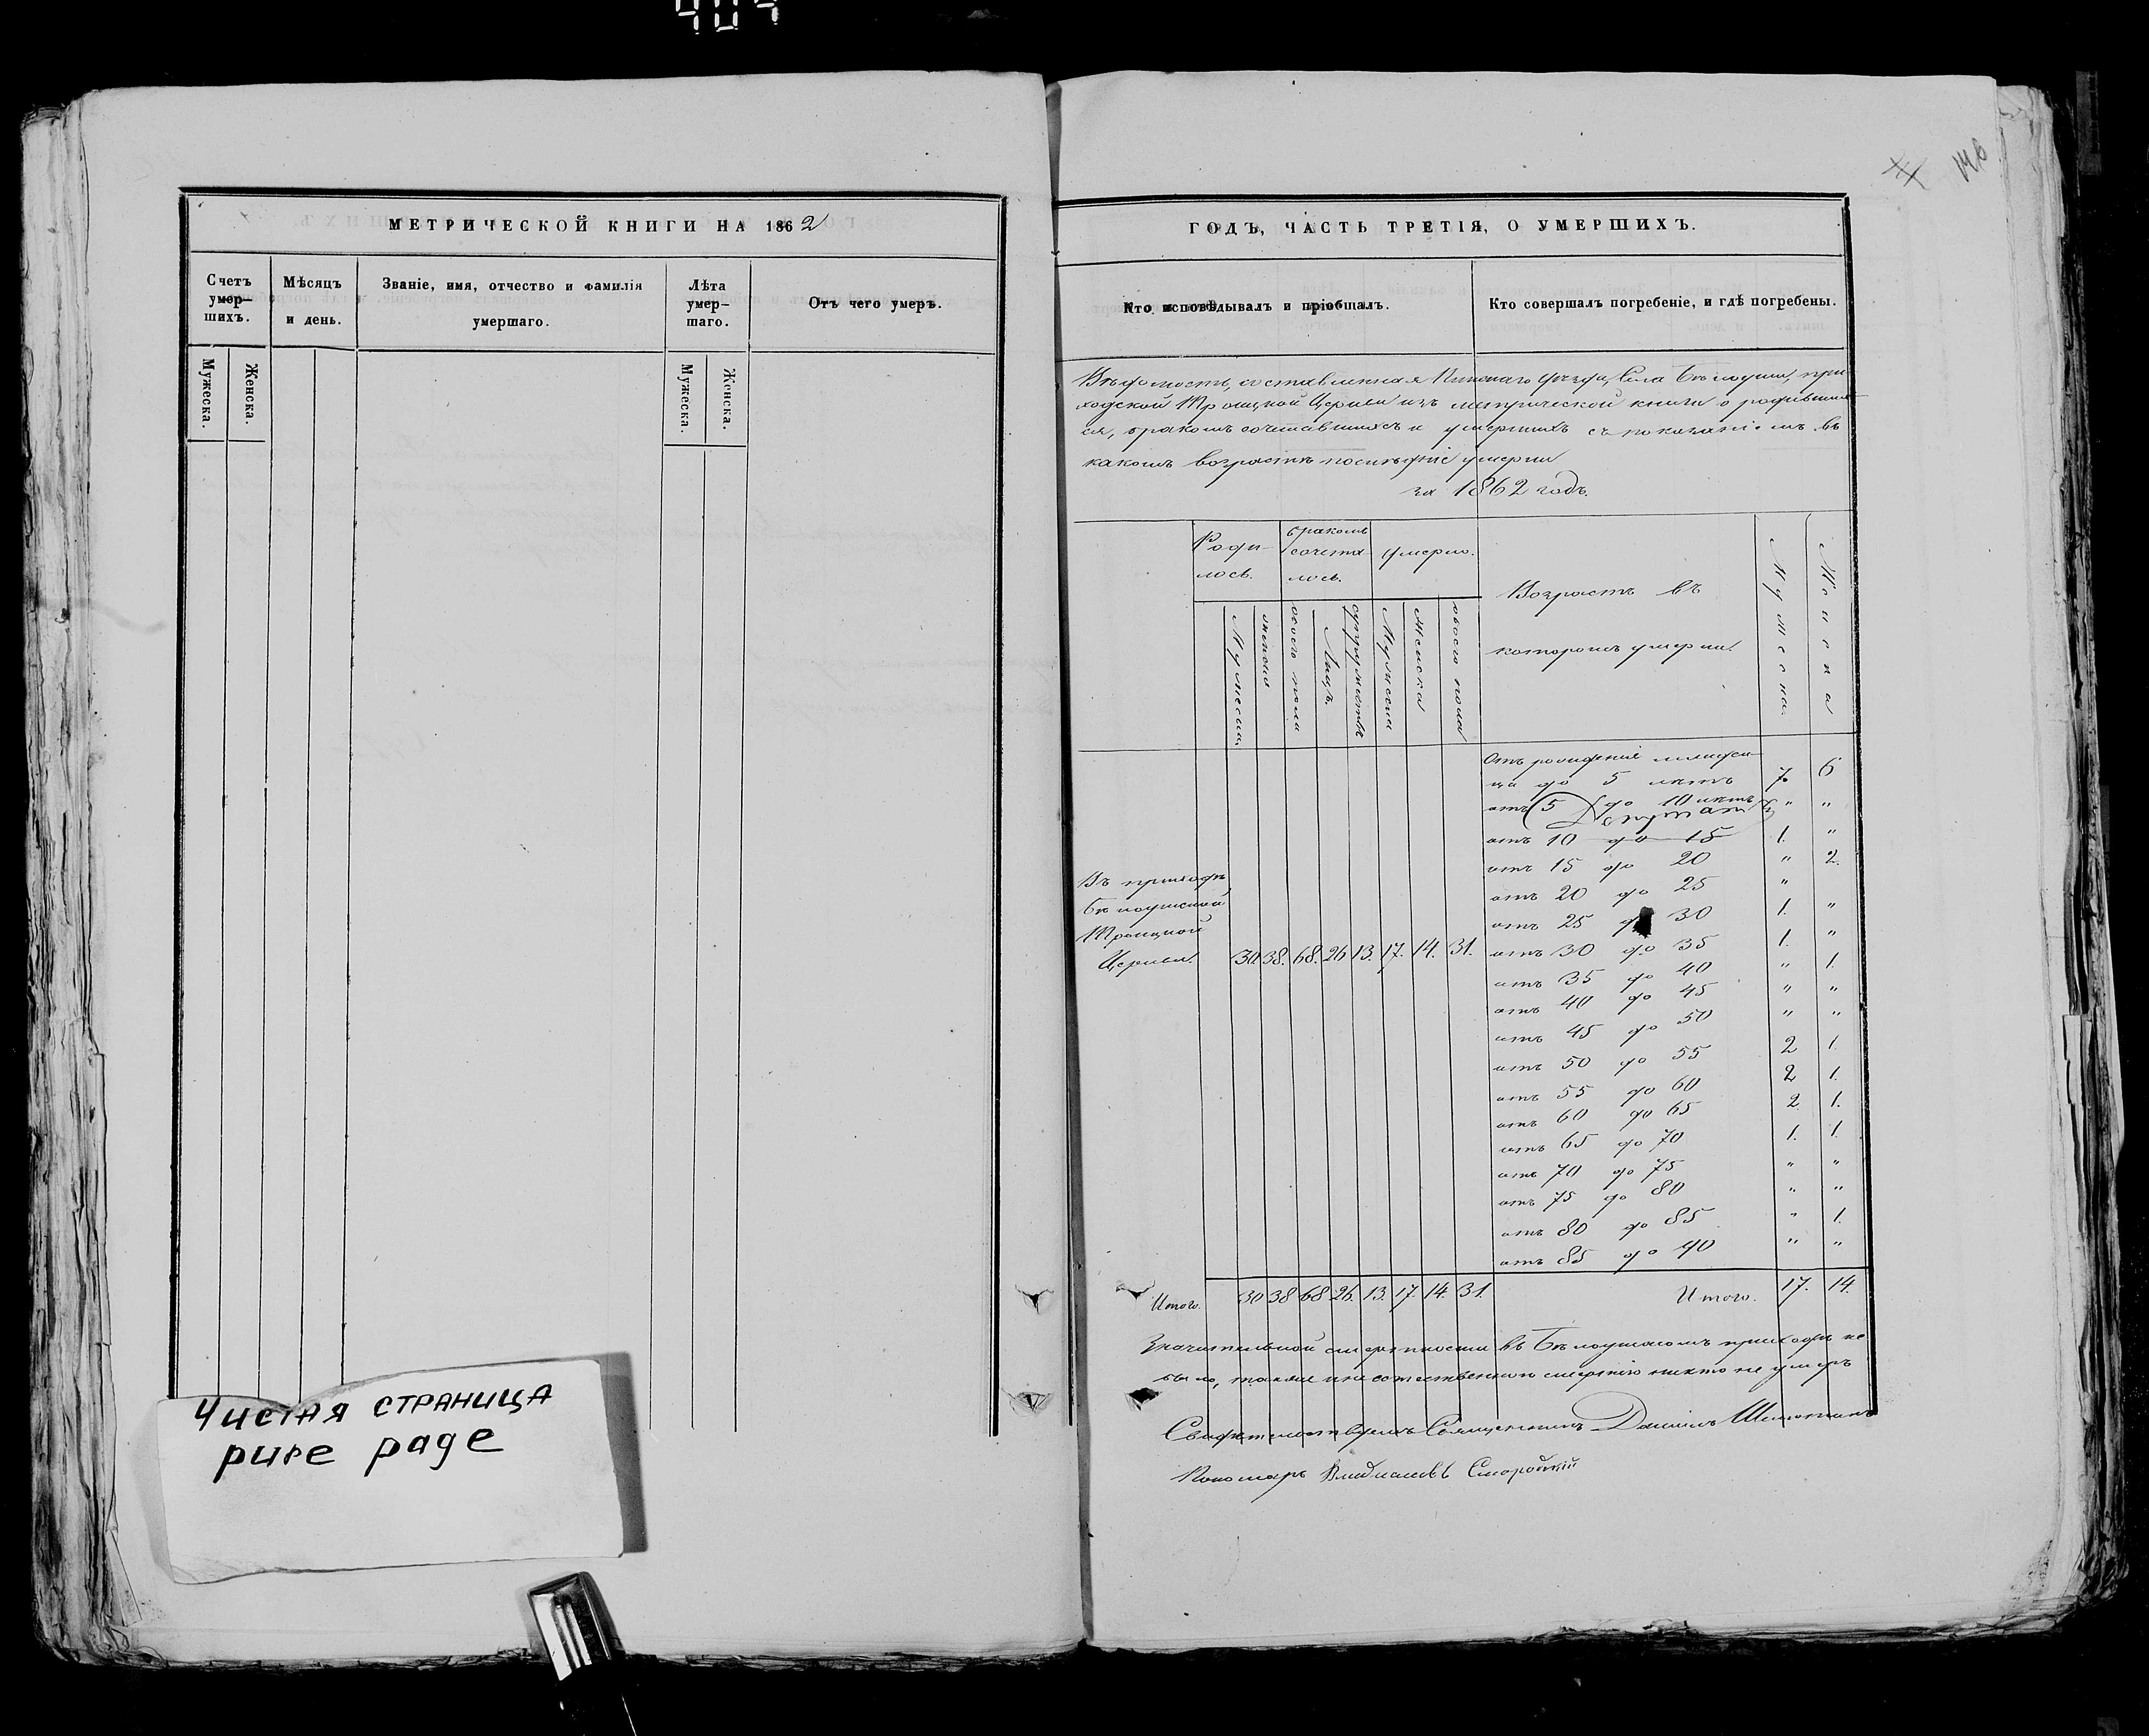 404
140
МЕТРИЧЕСКОЙ КНИГИ НА 1862
Счетъ умер—шихъ.
Мужеска.
Женска.
Мѣсяцъ и день.
Званіе, имя, отчество и фамилія умершаго.
Лѣта умер—шаго.
Мужеска.
Женска.
Отъ чего умеръ.
Чистая страница
pure page
ГОДЪ, ЧАСТЬ ТРЕТІЯ, О УМЕРШИХЪ.
Кто исповѣдывалъ и пріобщалъ.
Кто совершалъ погребеніе, и гдѣ погребены.
Вѣдомость, составленная Пинскаго Уѣзда, Села Бѣлоуши, при
ходской Троицкой Церкви изъ метрической книги о родивших
ся, бракомъ сочетавшихся и умершихъ съ показаніемъ въ
какомъ возрастѣ послѣдніе умерли
за 1862 годъ.
Роди-
лось.
Мужеска
женска
обоего пола
бракомъ
сочета
лось.
Лицъ
супружествъ
Умерло.
Мужеска
Женска
обоего пола
Возрастъ въ
которомъ умерли.
Мужеска.
Женска
Отъ рожденія младен
ца до 5 лѣтъ 7. 6
отъ 5 до 10 лѣтъ " "
отъ 10 до 15 1. "
отъ 15 до 20 " 2.
отъ 20 до 25 "
отъ 25 до 30 1. "
отъ 30 до 35 1. "
отъ 35 до 40 " 1.
отъ 40 до 45 " "
отъ 45 до 50 " "
отъ 50 до 55 2 1.
отъ 55 до 60 2 1.
отъ 60 до 65 2 1.
отъ 65 до 70 1. 1.
отъ 70 до 75 " "
отъ 75 до 80 " "
отъ 80 до 85 " 1.
отъ 85 до 90 " "
Въ приходѣ
Бѣлоушской
Троицкой
Церкви. 30 38. 68. 26 13. 17. 14. 31.
Итого. 30 38 68 26. 13. 17. 14. 31. Итого. 17. 14.
Значительной смертности въ Бѣлоушскомъ приходѣ не
было, также неестественною смертію никто не умеръ
Свидѣтельствуемъ Священникъ Даніилъ
Пономарь